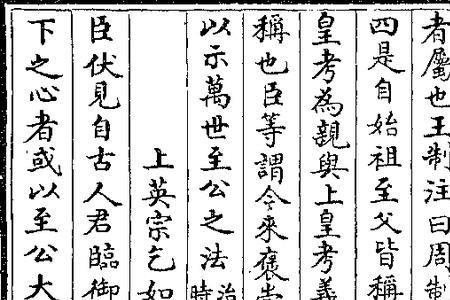 者屬也王制注曰周制
四是自始祖至父皆稱
皇考為親與上皇考義
稱也臣等謂今來褒崇
以示萬世至公之法治時
上英宗乞如
臣伏見自古人君臨御
下之心者或以至公大